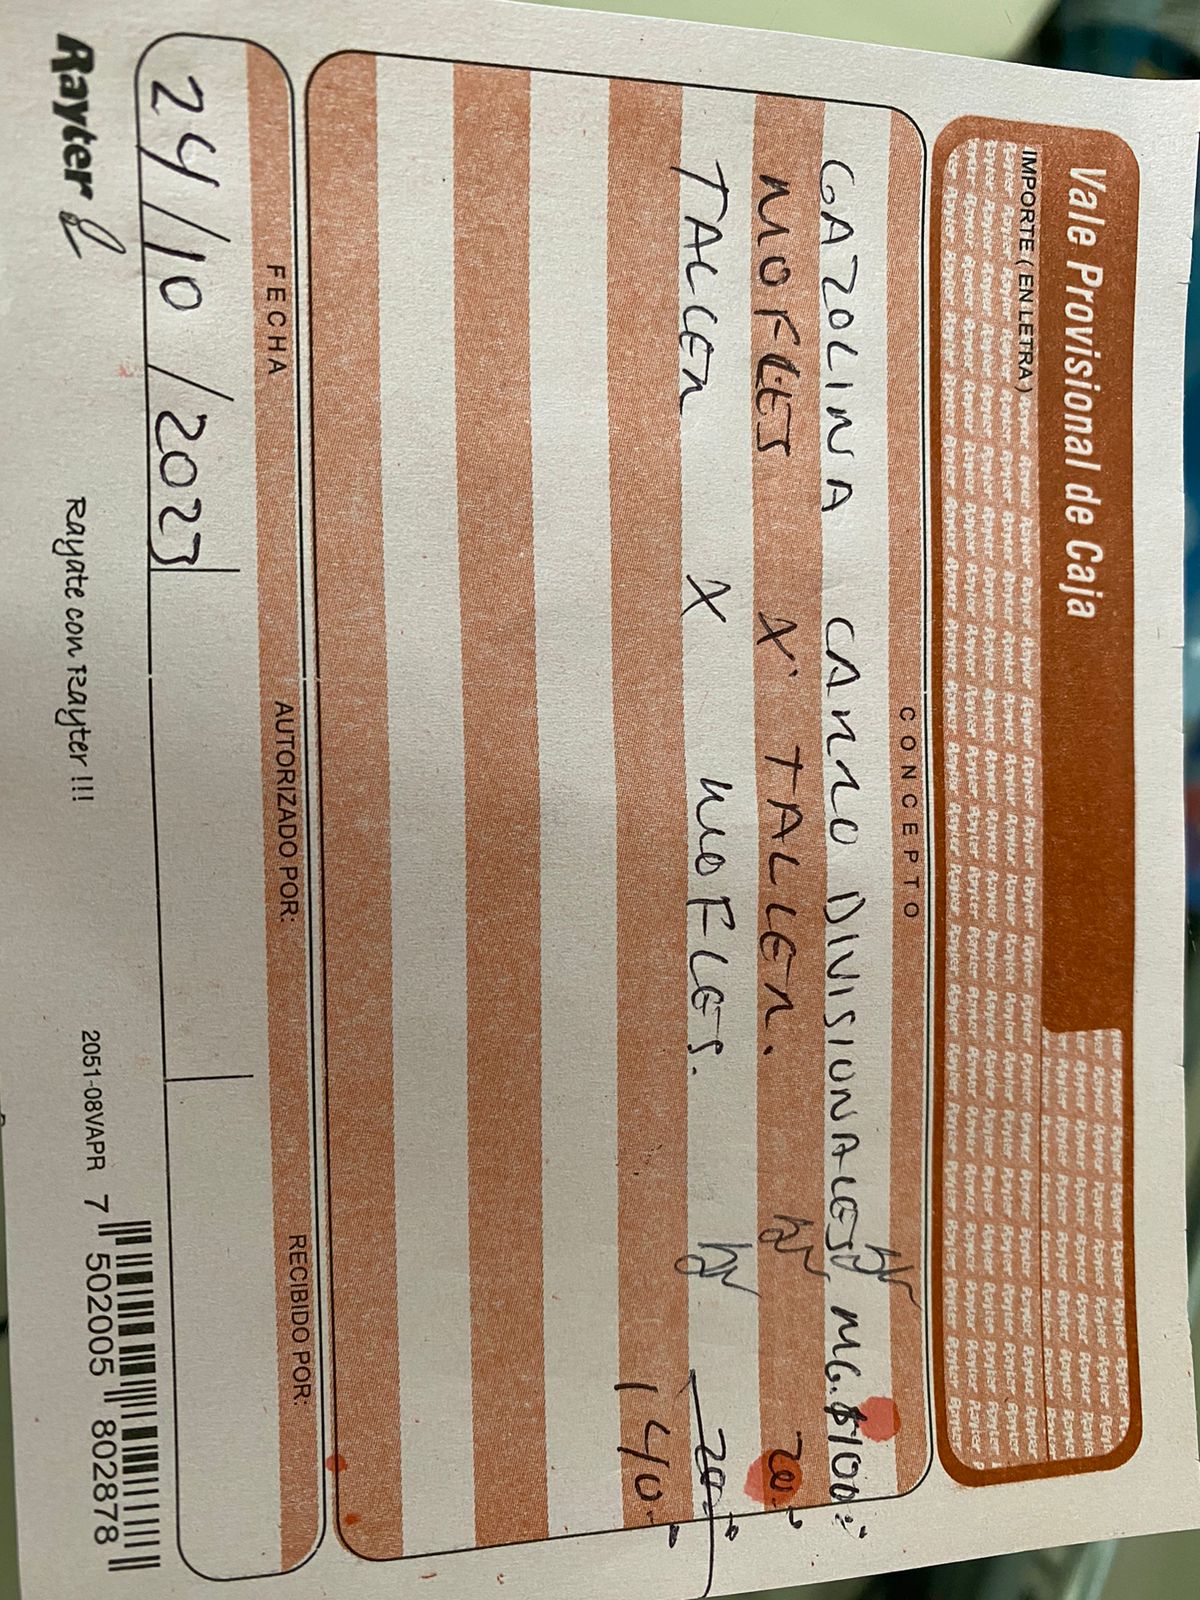 Vale Provisional de Caja
IMPORTE ( EN LETRA )
CONCEPTO
GAZOLINA CARRO DIVISIONALES MG. $100.
MOFLES X TALLER. 20.-
TALLER X MOFLES. 20.-
140.-
FECHA
AUTORIZADO POR:
RECIBIDO POR:
24/10/2023
Rayter
Rayate con Rayter !!!
2051-08VAPR
7 502005 802878